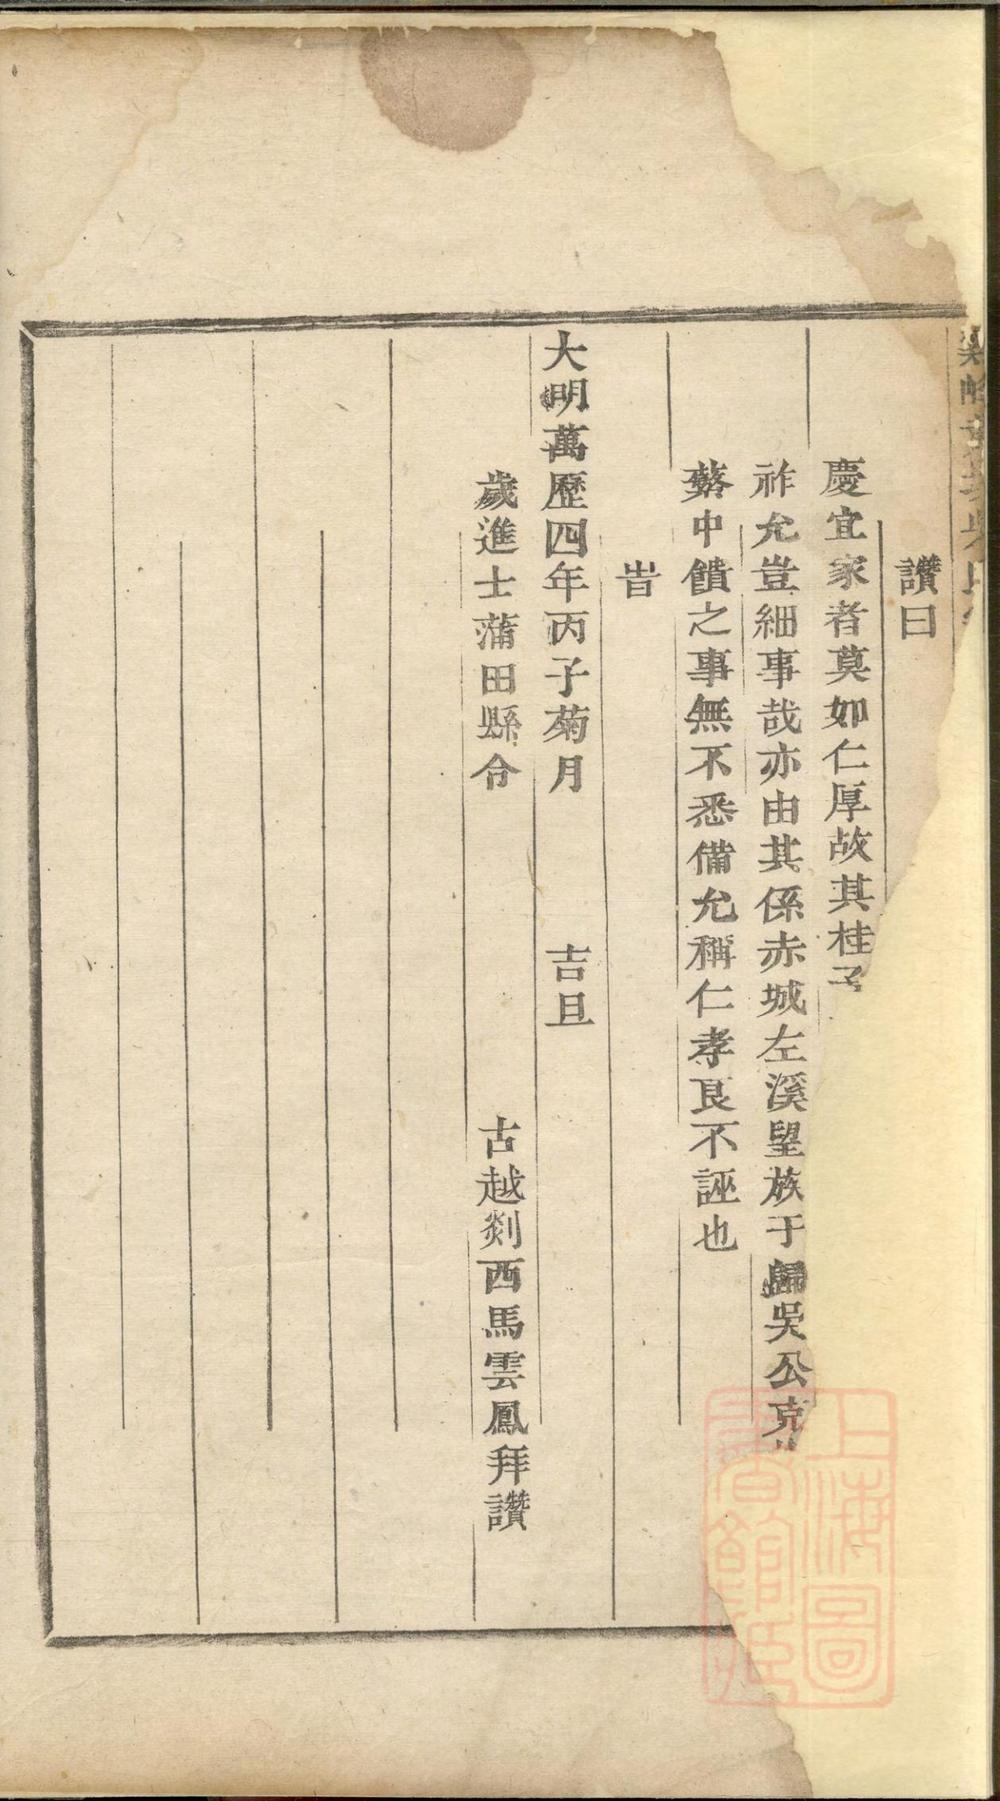 吳氏
讚曰
慶宜家者莫如仁厚故其桂子
祚允豈細事哉亦由其係赤城左溪望族于歸吳公克
蘩中饋之事無不悉備允稱仁孝良不誣也
旹
大明萬歷四年丙子菊月 吉旦
歲進士蒲田縣令 古越剡西馬雲鳳拜讚
上海圖書館藏